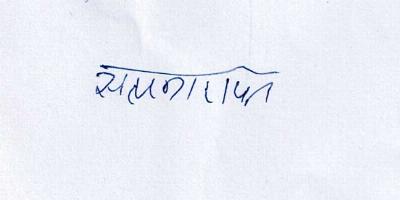 सत्यनारायण